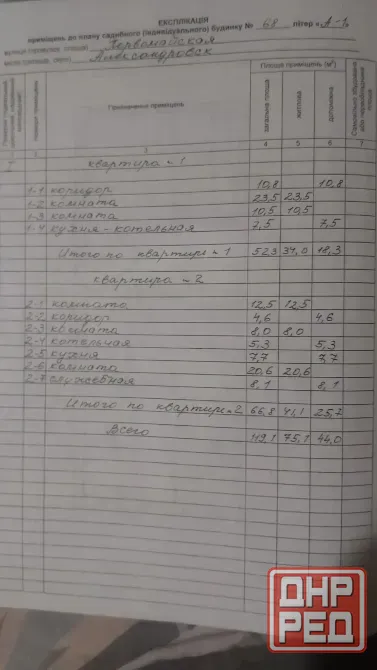 ЕКСПЛІКАЦІЯ
приміщень до плану садибного (індивідуального) будинку № 68 літер «А-1»
вулиця (провулок, площа) Первомайская
місто (селище, село) Александровск
Площа приміщень (м²)
Призначення приміщень
загальна площа
житлова
допоміжна
3 4 5 6 7
I квартира - 1
1-1 коридор 10,8 10,8
1-2 комната 23,5 23,5
1-3 комната 10,5 10,5
1-4 кухня-котельная 7,5 7,5
Итого по квартире - 1 52,3 34,0 18,3
квартира - 2
2-1 комната 12,5 12,5
2-2 коридор 4,6 4,6
2-3 комната 8,0 8,0
2-4 котельная 5,3 5,3
2-5 кухня 7,7 7,7
2-6 комната 20,6 20,6
2-7 служебная 8,1 8,1
Итого по квартире - 2 66,8 41,1 25,7
Всего 119,1 75,1 44,0
ДНР
РЕД